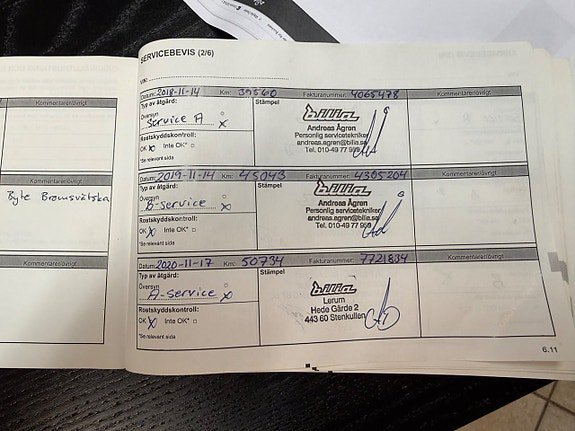 Kommentarer/övrigt
Kommentarer/övrigt
Byte Bromsvätska
Kommentarer/övrigt
SERVICEBEVIS (2/6)
VIN:
Datum: 2018-11-14 Km: 39560 Fakturanummer: 4065478 Kommentarer/övrigt
Typ av åtgärd: Stämpel
Översyn
Service A x
Rostskyddskontroll:
OK x Inte OK*
*Se relevant sida
bilia
Andreas Ågren
Personlig servicetekniker
andreas.agren@bilia.se
Tel. 010-49 77
Datum: 2019-11-14 Km: 45043 Fakturanummer: 4395204 Kommentarer/övrigt
Typ av åtgärd: Stämpel
Översyn
B-service x
Rostskyddskontroll:
OK x Inte OK*
*Se relevant sida
bilia
Andreas Ågren
Personlig servicetekniker
andreas.agren@bilia.se
Tel. 010-49 77
Datum: 2020-11-17 Km: 50734 Fakturanummer: 7721834 Kommentarer/övrigt
Typ av åtgärd: Stämpel
Översyn
A-service x
Rostskyddskontroll:
OK x Inte OK*
*Se relevant sida
bilia
Lerum
Hede Gärde 2
443 60 Stenkullen
6.11